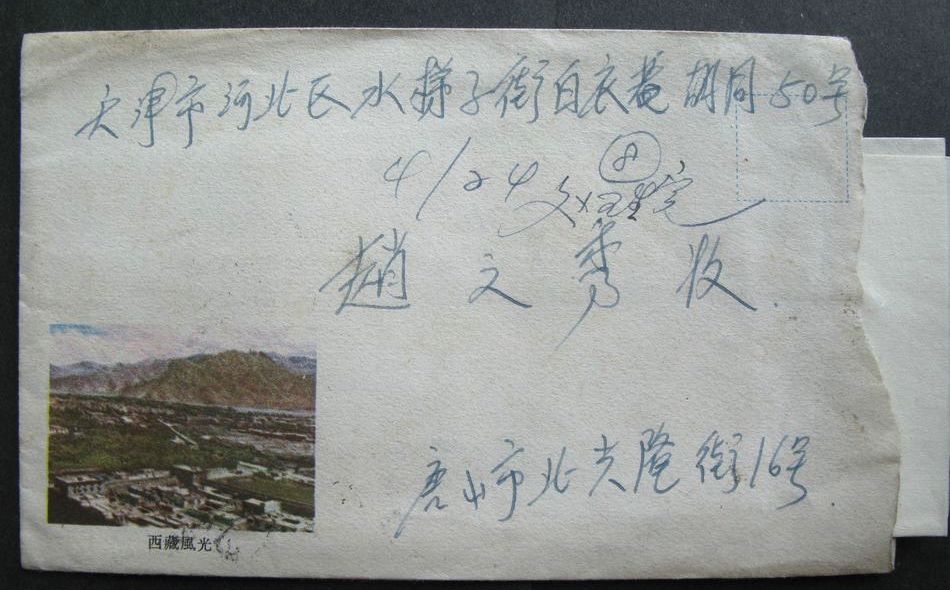 天津市河北区水梯子街白衣菴胡同50号
4/24
趙文秀收
唐山市北兴隆街16号
西藏風光